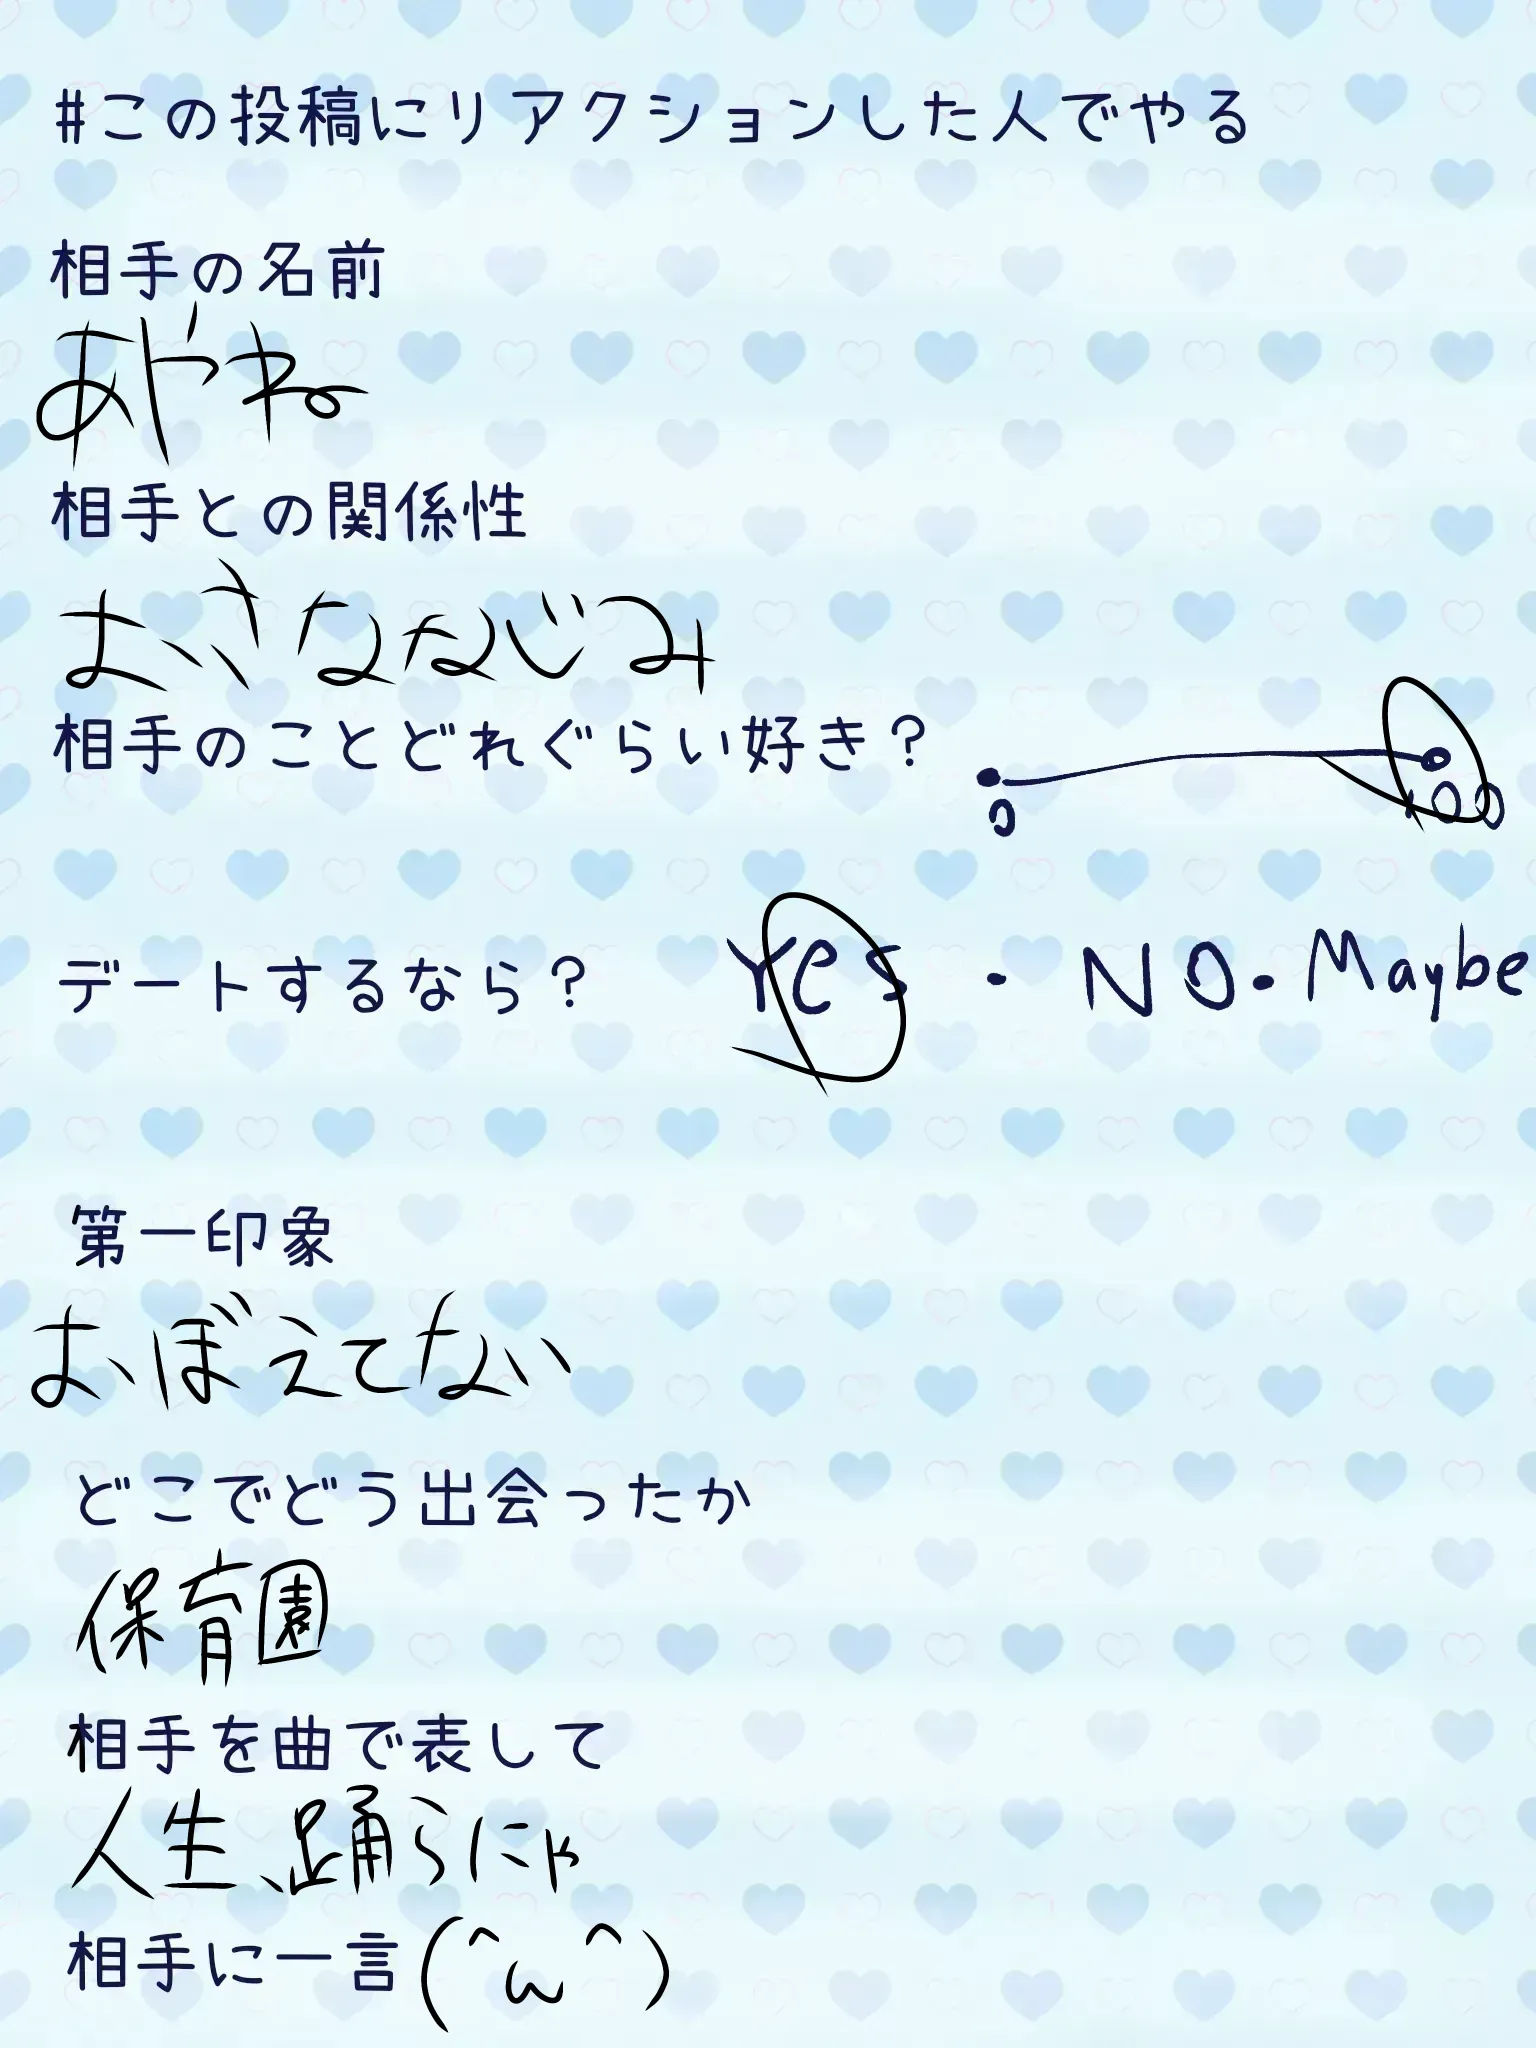 #この投稿にリアクションした人でやる
相手の名前
あやね
相手との関係性
おさななじみ
相手のことどれぐらい好き？
0 100
デートするなら？ Yes ・ NO ・ Maybe
第一印象
おぼえてない
どこでどう出会ったか
保育園
相手を曲で表して
人生、踊らにゃ
相手に一言(^ω^)